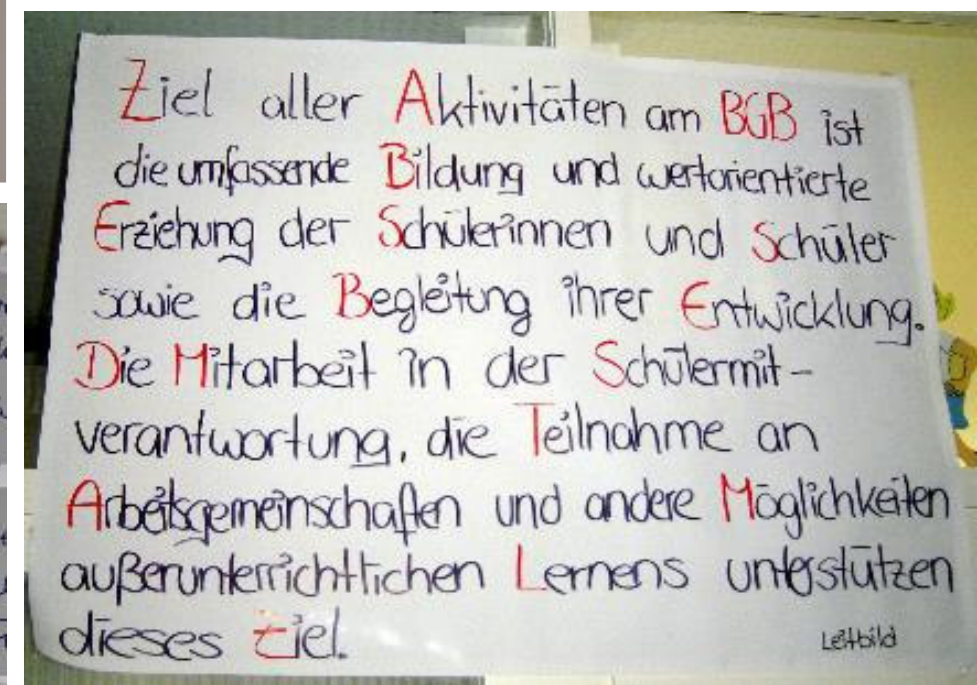 Ziel aller Aktivitäten am BGB ist
die umfassende Bildung und wertorientierte
Erziehung der Schülerinnen und Schüler
sowie die Begleitung ihrer Entwicklung.
Die Mitarbeit in der Schülermit-
verantwortung, die Teilnahme an
Arbeitsgemeinschaften und andere Möglichkeiten
außerunterrichtlichen Lernens unterstützen
dieses Ziel.
Leitbild